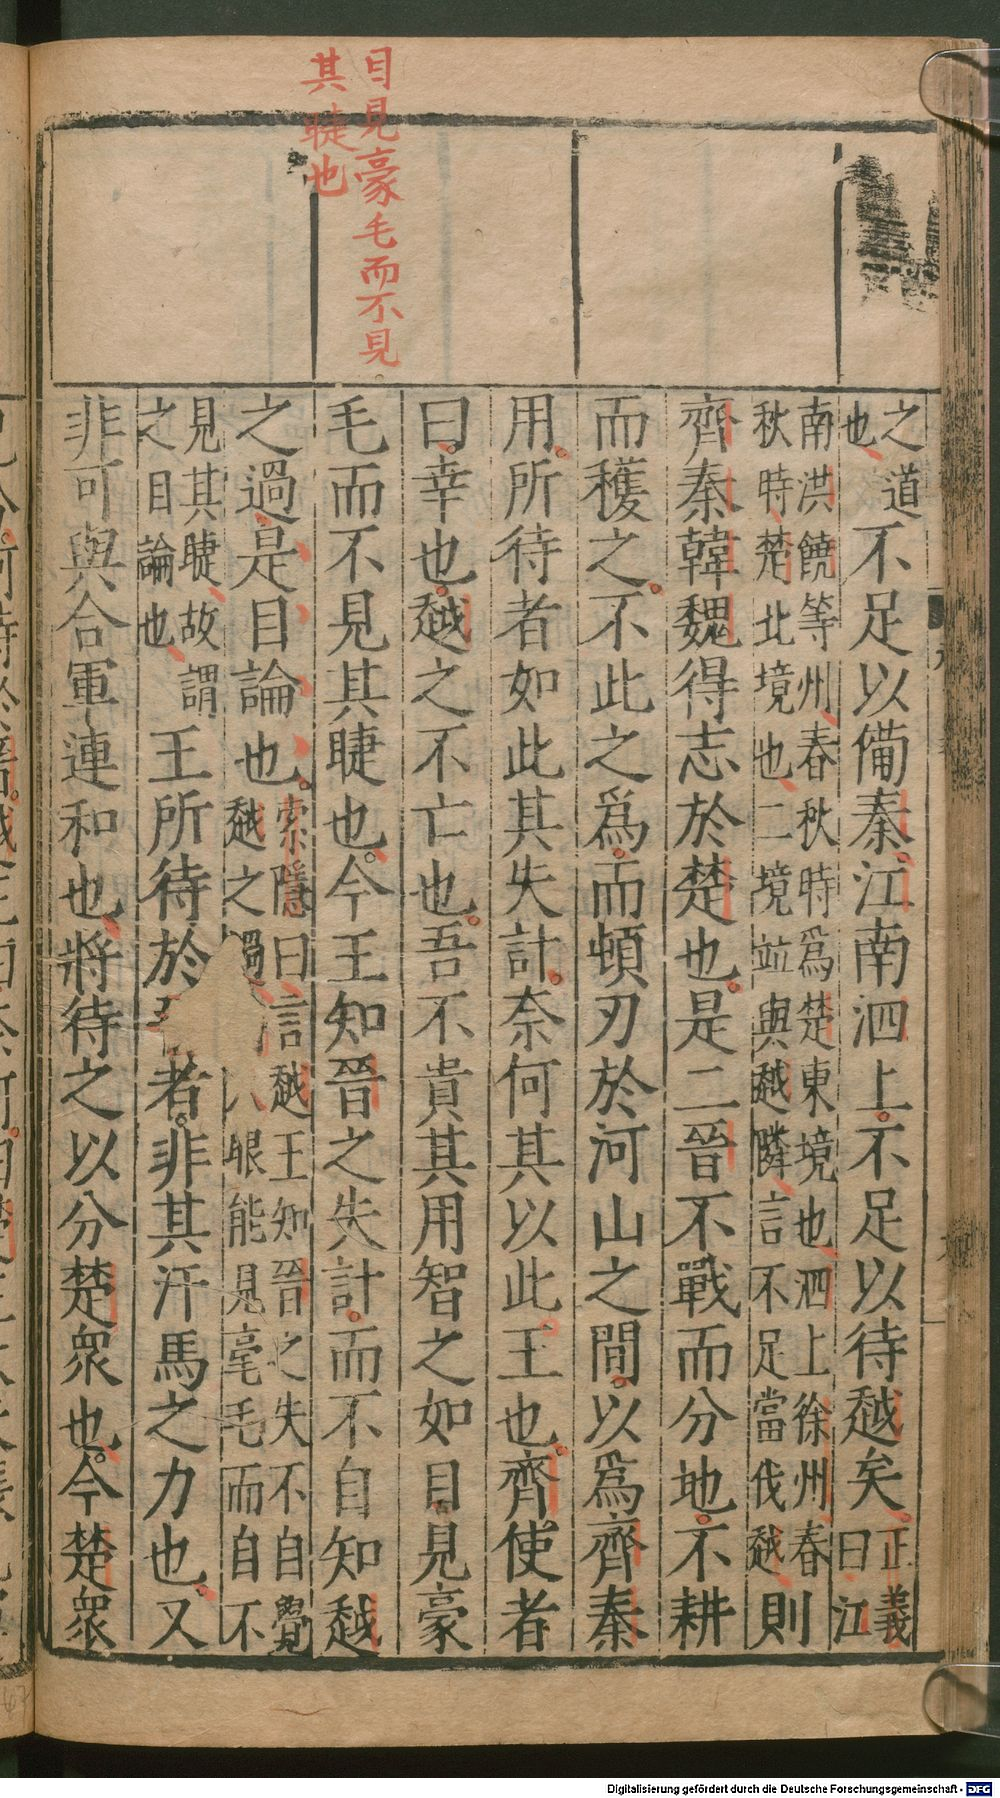 目見豪毛而不見
其睫也
之道
也
不足以備秦江南泗上不足以待越矣
正義
曰江
南洪饒等州春秋時爲楚東境也泗上徐州春
秋時楚北境也二境竝與越隣言不足當伐越
則
齊秦韓魏得志於楚也是二晉不戰而分地不耕
而穫之不此之爲而頓刃於河山之間以爲齊秦
用所待者如此其失計奈何其以此王也齊使者
曰幸也越之不亡也吾不貴其用智之如目見豪
毛而不見其睫也今王知晉之失計而不自知越
之過是目論也
索隱曰言越王知晉之失不自覺
越之過人眼能見毫毛而自不
見其睫故謂
之目論也
王所待於者非其汗馬之力也又
非可與合軍連和也將待之以分楚衆也今楚衆
Digitalisierung gefördert durch die Deutsche Forschungsgemeinschaft - DFG